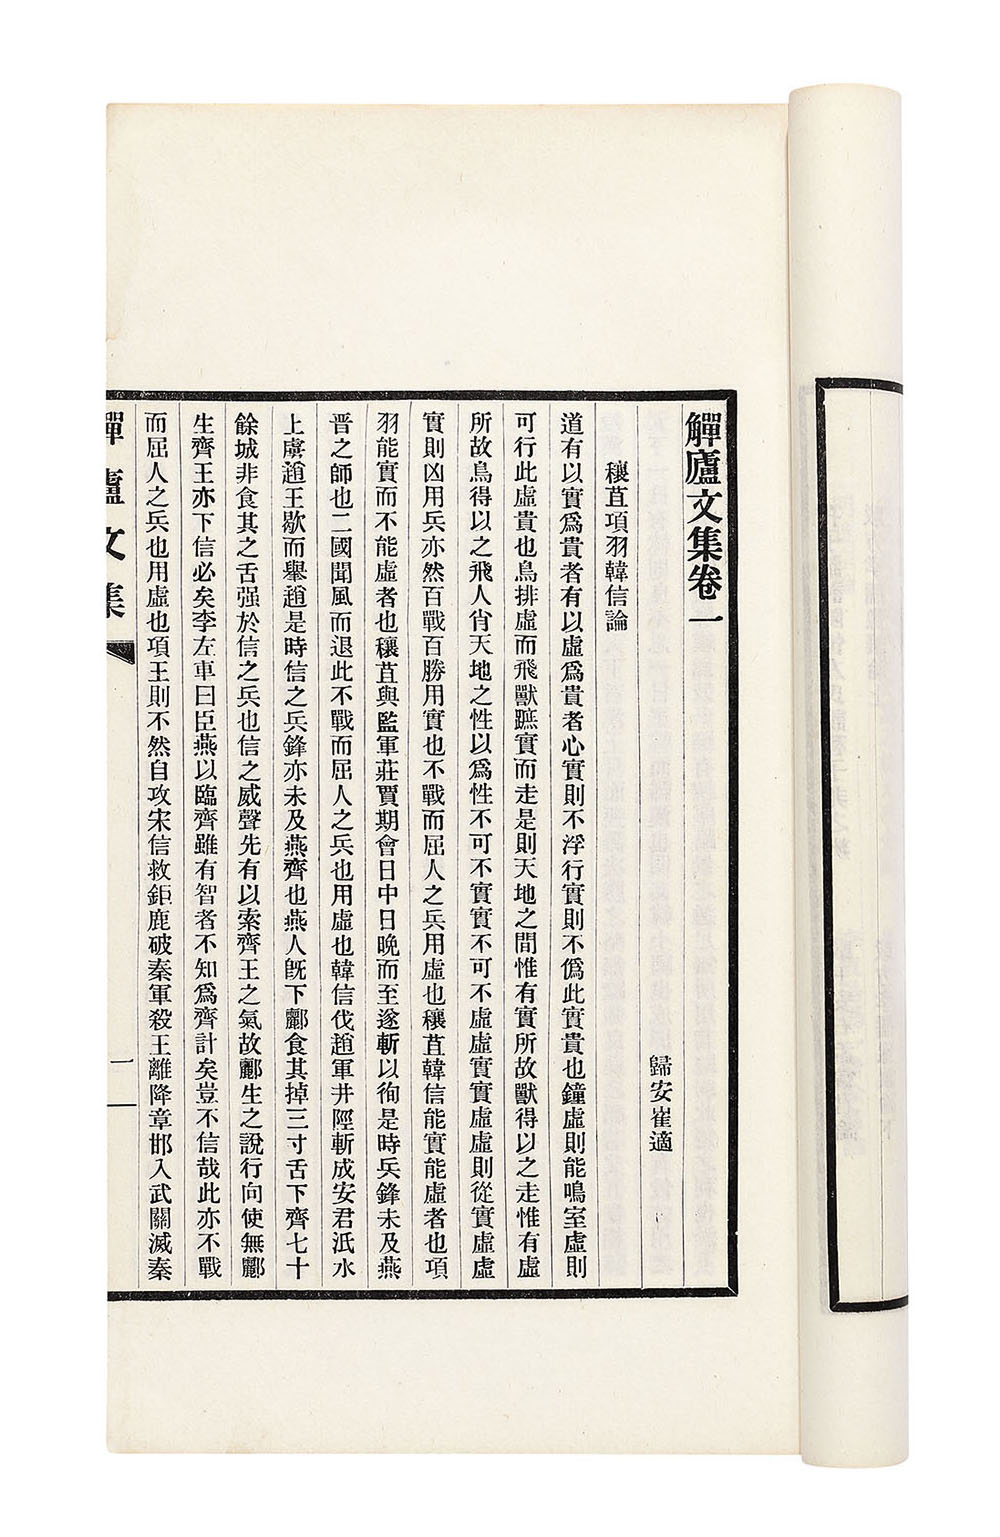 觶廬文集卷一
歸安崔適
穰苴項羽韓信論
道有以實爲貴者有以虛爲貴者心實則不浮行實則不僞此實貴也鐘虛則能鳴室虛則
可行此虛貴也鳥排虛而飛獸蹠實而走是則天地之間惟有實所故獸得以之走惟有虛
所故鳥得以之飛人肖天地之性以爲性不可不實實不可不虛虛實實虛虛則從實虛虛
實則凶用兵亦然百戰百勝用實也不戰而屈人之兵用虛也穰苴韓信能實能虛者也項
羽能實而不能虛者也穰苴與監軍莊賈期會日中日晚而至遂斬以徇是時兵鋒未及燕
晋之師也二國聞風而退此不戰而屈人之兵也用虛也韓信伐趙軍井陘斬成安君泜水
上虜趙王歇而舉趙是時信之兵鋒亦未及燕齊也燕人旣下酈食其掉三寸舌下齊七十
餘城非食其之舌强於信之兵也信之威聲先有以索齊王之氣故酈生之說行向使無酈
生齊王亦下信必矣李左車曰臣燕以臨齊雖有智者不知爲齊計矣豈不信哉此亦不戰
而屈人之兵也用虛也項王則不然自攻宋信救鉅鹿破秦軍殺王離降章邯入武關滅秦
觶廬文集
一